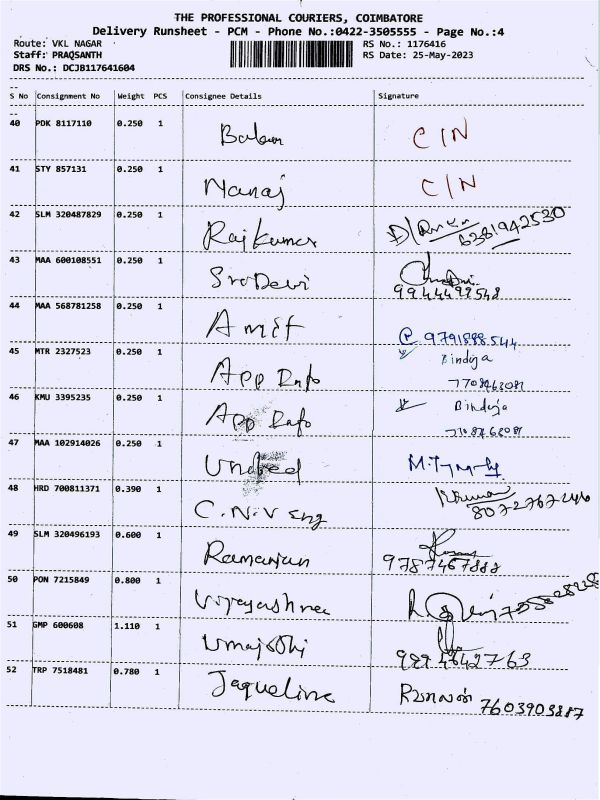 THE PROFESSIONAL COURIERS, COIMBATORE
Delivery Runsheet - PCM - Phone No.:0422-3505555 - Page No.:4
Route: VKL NAGAR RS No.: 1176416
Staff: PRAQSANTH RS Date: 25-May-2023
DRS No.: DCJB117641604
S No Consignment No Weight PCS Consignee Details Signature
40 PDK 8117110 0.250 1 Babu C/N
41 STY 857131 0.250 1 Manaj C/N
42 SLM 320487829 0.250 1 Rajkumar 6381942530
43 MAA 600108551 0.250 1 SroDevi
9944499548
44 MAA 568781258 0.250 1 Amit 9791888544
45 MTR 2327523 0.250 1 App Info Bindija
7708763081
46 KMU 3395235 0.250 1 App Info Bindija
7708763081
47 MAA 102914026 0.250 1 United
48 HRD 700811371 0.390 1 C.N.V Eng Kumar
8072767246
49 SLM 320496193 0.600 1 Ramanjan
9787467888
50 PON 7215849 0.800 1 Vijayashree
51 GMP 600608 1.110 1 Umajothi
52 TRP 7518481 0.780 1 Jaqueline 7603903887